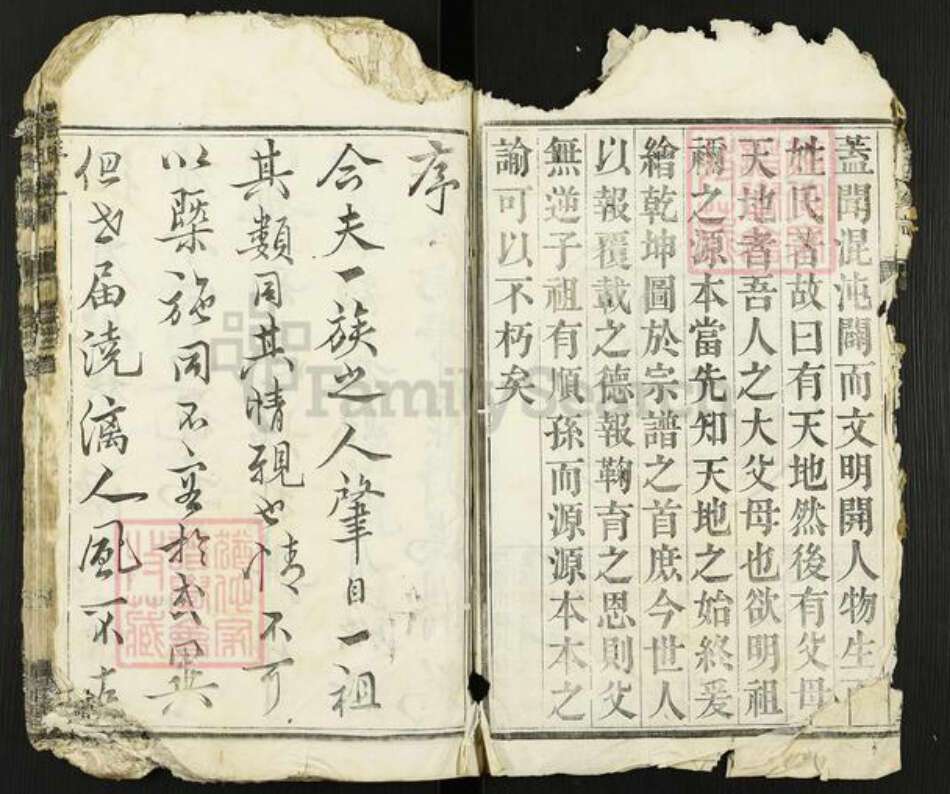 蓋聞混沌闢而文明開人物生而
姓氏著故曰有天地然後有父母
天地者吾人之大父母也欲明祖
禰之源本當先知天地之始終爰
繪乾坤圖於宗譜之首庶今世人
以報覆載之德報鞠育之恩則父
無逆子祖有順孫而源源本本之
諭可以不朽矣
序
今夫一族之人肇自一祖
其類同其情親也情不可
以槩施同不容於或異
但世届澆漓人風不古
FamilySearch